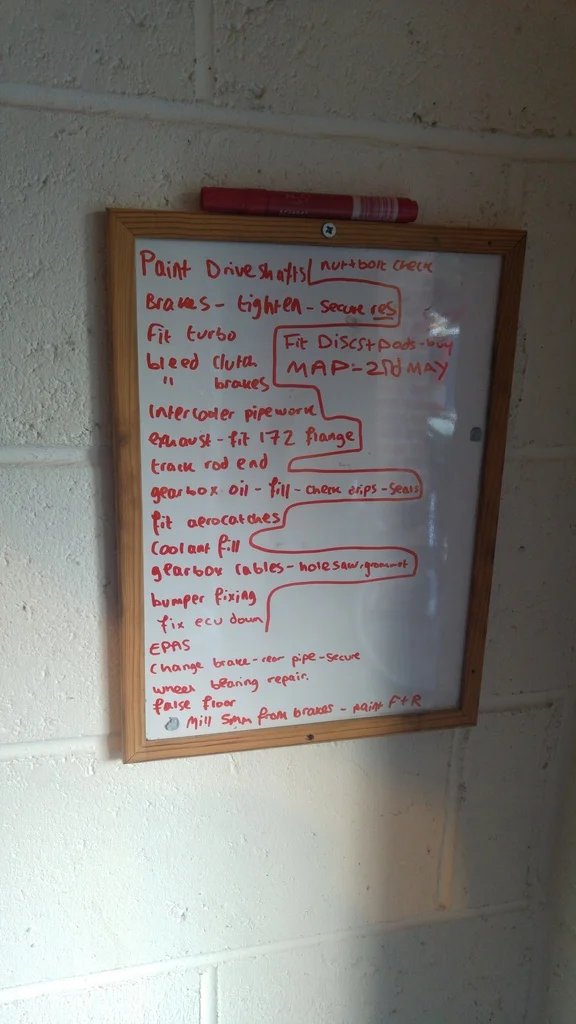 Paint Driveshafts
nut+bolt check
Brakes - tighten - secure res
Fit turbo
bleed clutch
" brakes
Fit Discs+pads-buy
MAP-2nd MAY
Intercooler pipework
exhaust-fit 172 flange
track rod end
gearbox oil - fill - check drips - seals
fit aerocatches
Coolant fill
gearbox cables - holesaw, grommet
bumper fixing
fix ecu down
EPAS
Change brake-rear pipe-secure
wheel bearing repair.
false floor
Mill 5mm from brakes - paint F+R